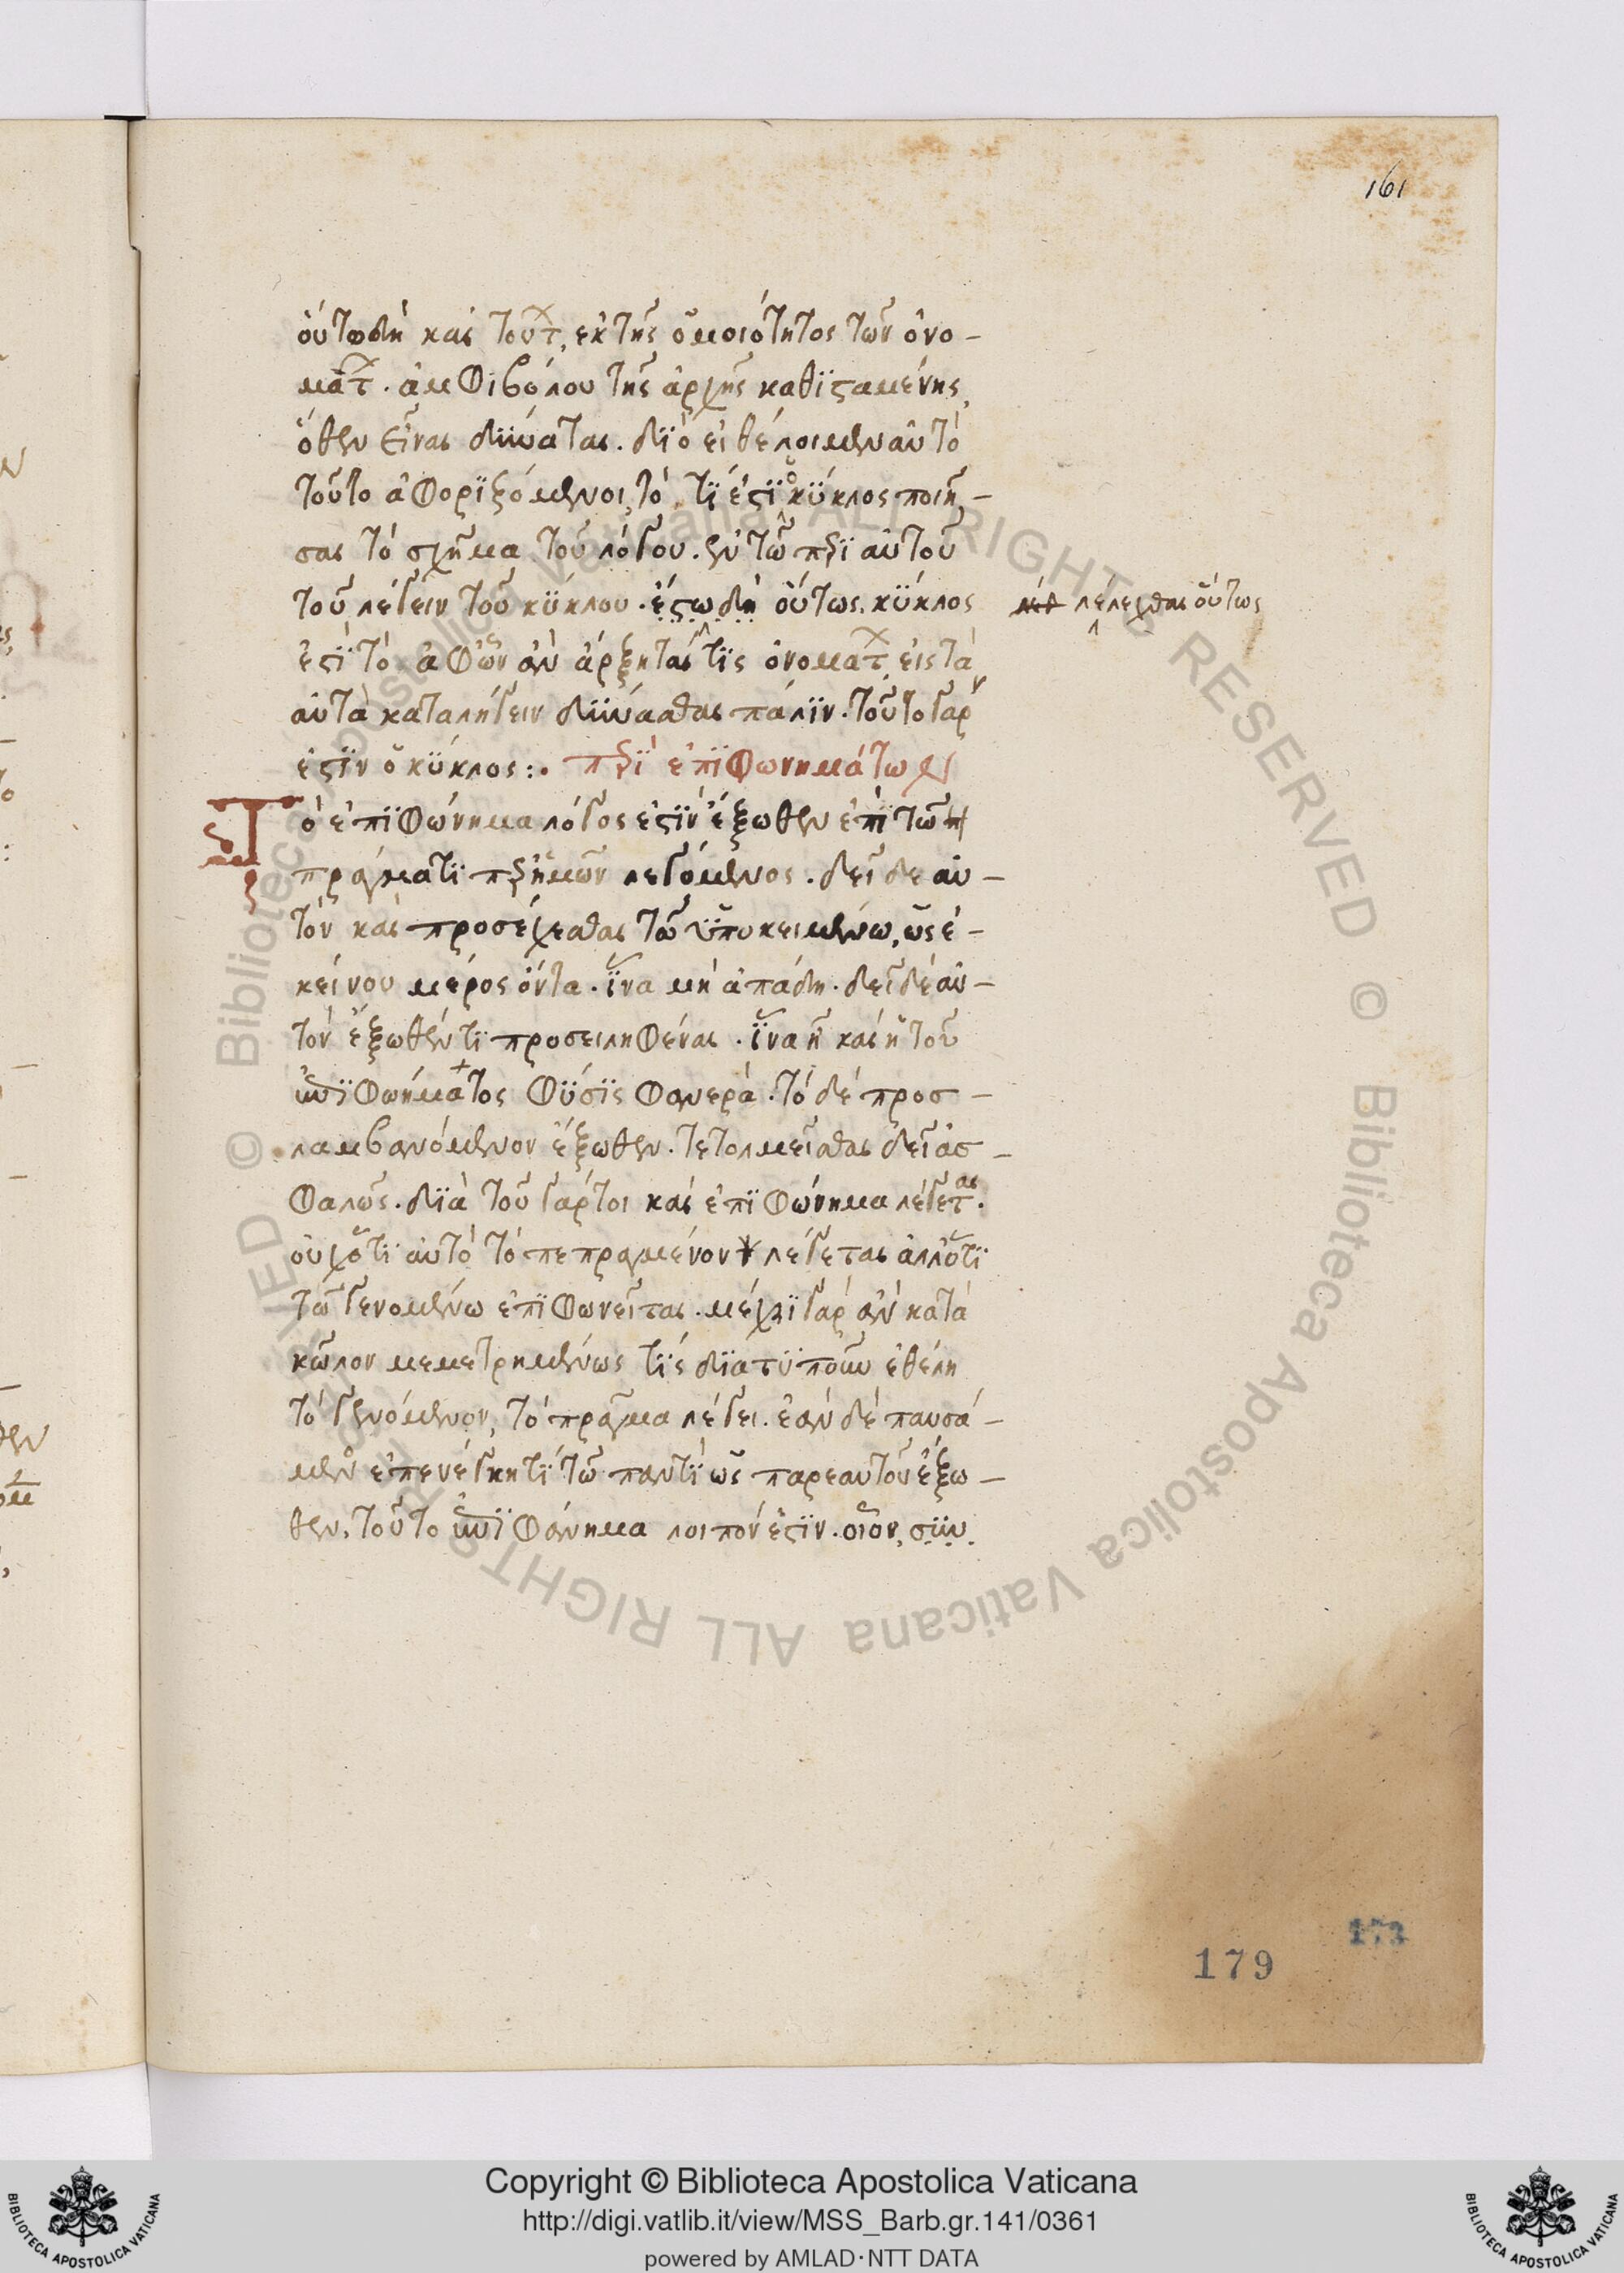 161
οὕτω δὴ καὶ τοῦτ, ἐκ τῆς ὁμοιότητος τῶν ὀνο-
μάτ. ἀμφιβόλου τῆς ἀρχῆς καθϊσταμένης,
ὅθεν εἶναι δύναται. δϊὸ εἰ θέλοιμεν αὐτὸ
τοῦτο ἀφορϊζόμενοι, τὸ, τΐ ἐστϊ ὁ κΰκλος ποιῆ-
σαι τὸ σχῆμα τοῦ λόγου. ἐν τῶ περϊ αὐτοῦ
τοῦ λέγειν τοῦ κΰκλου. ἔστω δὴ οὕτως. κΰκλος
λελέχθαι οὕτως
ἐστϊ τὸ ἀφ' ὧν ἂν ἄρξηται τϊς ὀνομάτ, εἰς τὰ
αὐτὰ καταλήγειν δύνασθαι πάλϊν. τοῦτο γὰρ
ἐστϊν ὁ κΰκλος:. περϊ ἐπϊφωνημάτων
Τὸ ἐπϊφώνημα λόγος ἐστϊν ἔξωθεν ἐπϊ τῶ
πράγματϊ παρ' ἡμῶν λεγόμενος. δεῖ δὲ αὐ-
τὸν καὶ προσέχεσθαι τῶ ὑποκειμένω, ὡς ἐ-
κείνου μέρος ὄντα. ἵνα μὴ ἀπάδη. δεῖ δὲ αὐ-
τὸν ἔξωθέν τϊ προσειληφέναι. ἵνα ἦ καὶ ἡ τοῦ
ἐπϊφωνήματος φΰσϊς φανερά. τὸ δὲ προσ-
λαμβανόμενον ἔξωθεν. τετολμεῖσθαι δεῖ ἀσ-
φαλῶς. δϊὰ τοῦ γάρτοι καὶ ἐπϊφώνημα λέγεται.
οὐχ' ὅτϊ αὐτὸ τὸ πεπραγμένον λέγεται ἀλλ' ὅτϊ
τῶ γενομένω ἐπϊφωνεῖται. μέχρϊ γὰρ ἂν κατὰ
κῶλον μεμετρημένως τϊς δϊατΰπουν ἐθέλη
τὸ γενόμενον, τὸ πρᾶγμα λέγει. ἐὰν δὲ παυσά-
μενος ἐπενέγκη τϊ τῶ παντϊ ὡς παρ' ἑαυτοῦ ἔξω-
θεν, τοῦτο ἐπϊφώνημα λοιπόν ἐστϊν. οἷον, σΰν
179
173
Copyright © Biblioteca Apostolica Vaticana
http://digi.vatlib.it/view/MSS_Barb.gr.141/0361
powered by AMLAD·NTT DATA